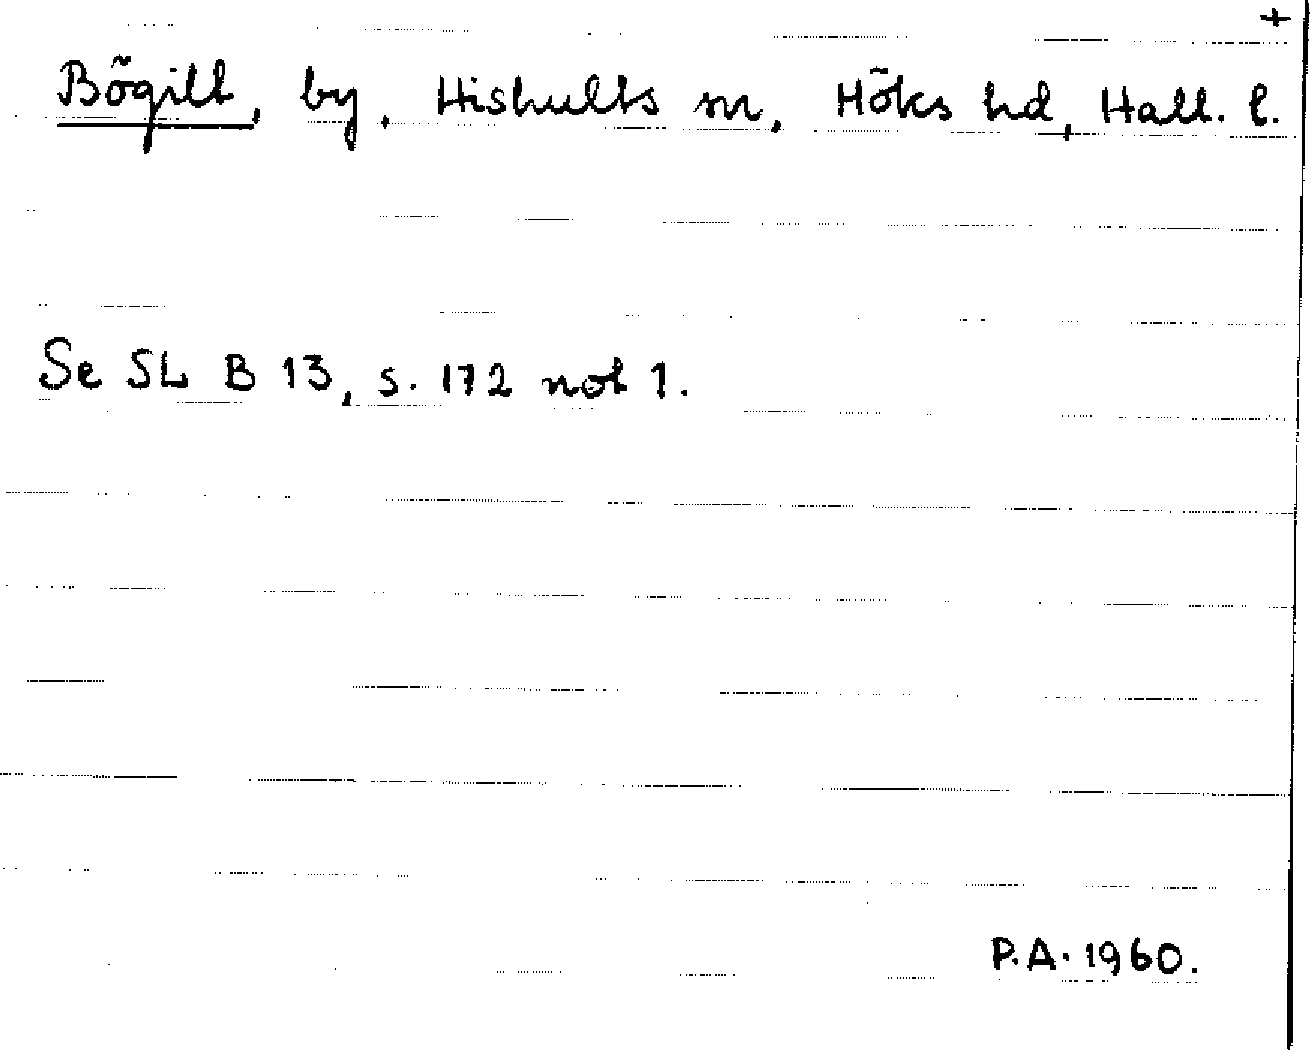 +
Bögilt, by, Hishults sn, Höks hd, Hall. l.
Se SL B 13, s. 172 not 1.
P.A. 1960.